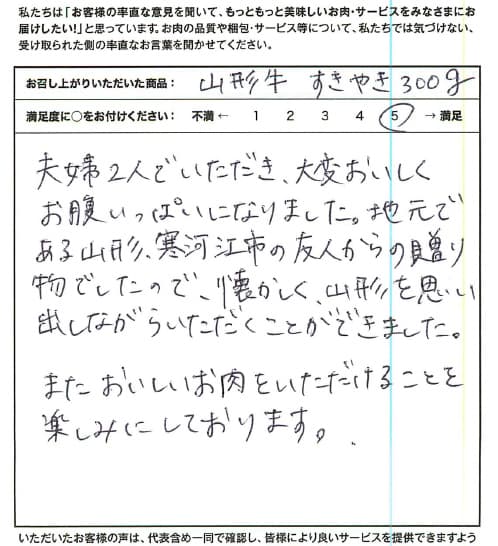 私たちは「お客様の率直な意見を聞いて、もっともっと美味しいお肉・サービスをみなさまにお
届けしたい!」と思っています。お肉の品質や梱包・サービス等について、私たちでは気づけない、
受け取られた側の率直なお言葉を聞かせてください。
お召し上がりいただいた商品： 山形牛 すきやき 300g
満足度に○をお付けください： 不満 ← 1 2 3 4 5 → 満足
夫婦2人でいただき、大変おいしく
お腹いっぱいになりました。地元で
ある山形、寒河江市の友人からの贈り
物でしたので、懐かしく、山形を思い
出しながらいただくことができました。
またおいしいお肉をいただけることを
楽しみにしております。
いただいたお客様の声は、代表含め一同で確認し、皆様により良いサービスを提供できますよう